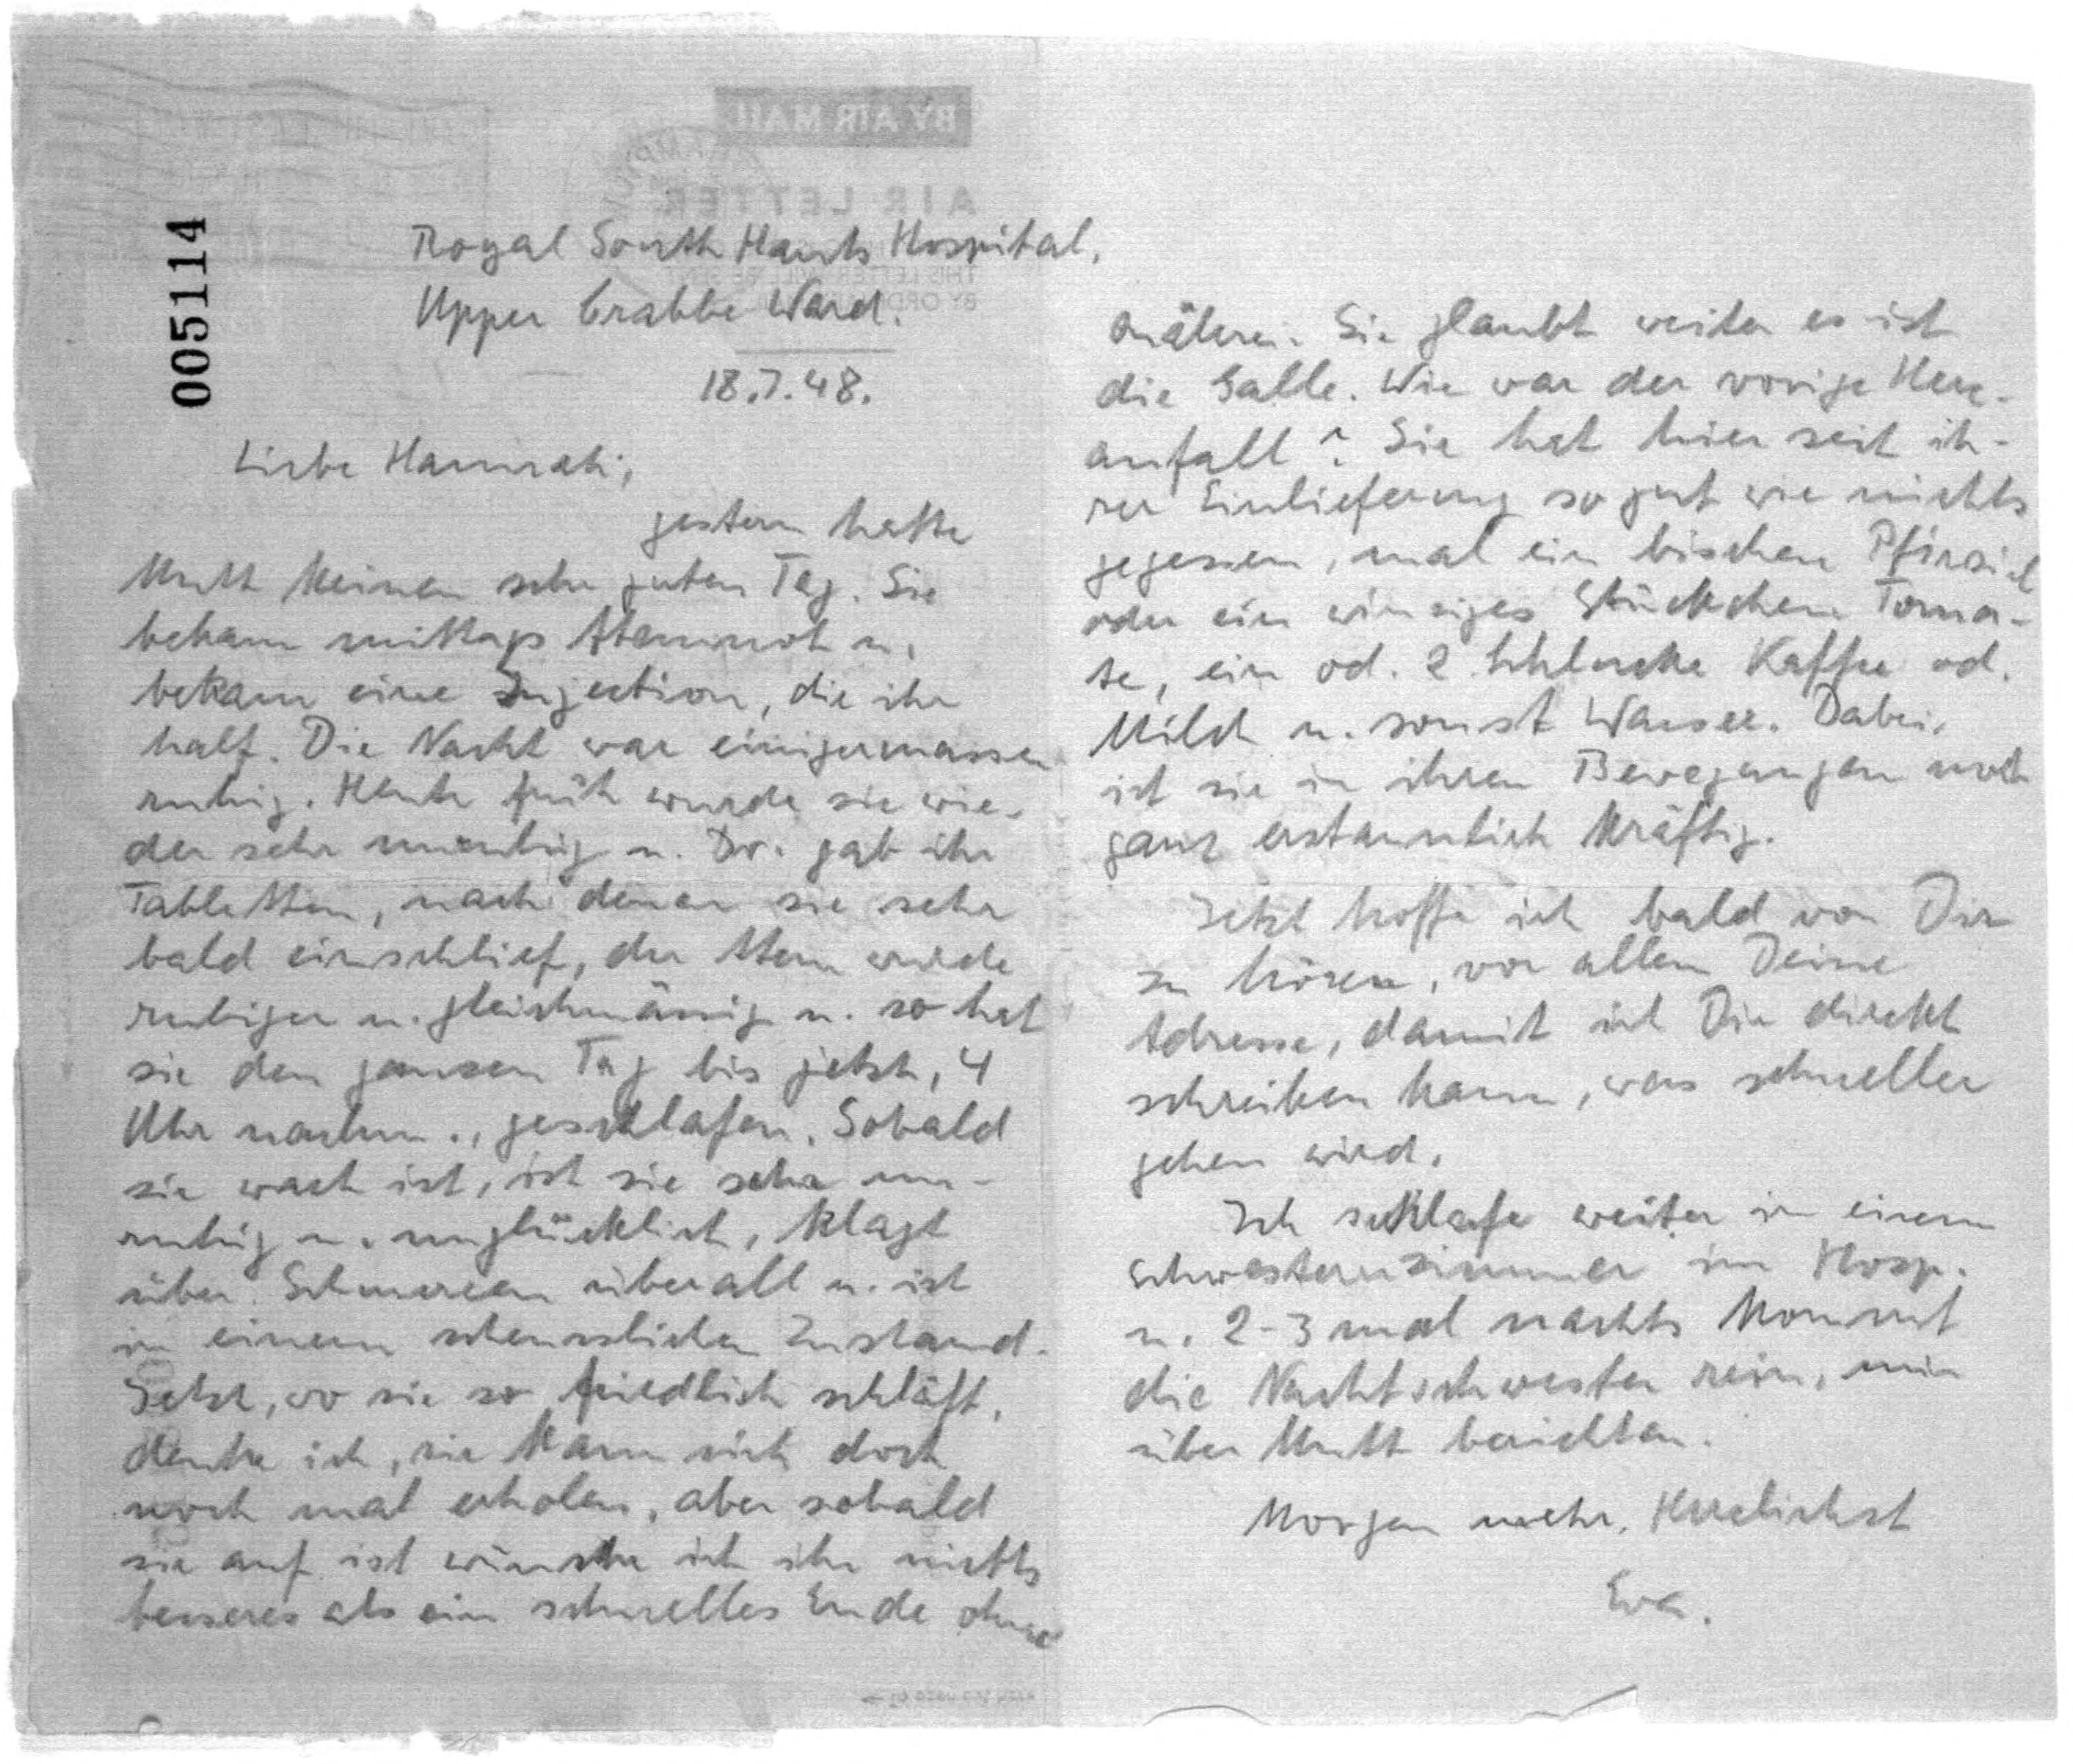 005114
BY AIR MAIL
AIR LETTER
Royal South Hants Hospital,
Upper Crabbe Ward.
18.7.48.
Liebe Hannah,
gestern hatte
Mutt keinen sehr guten Tag. Sie
bekam mittags Atemnot u.
bekam eine Injection, die ihr
half. Die Nacht war einigermassen
ruhig. Heute früh wurde sie wie-
der sehr unruhig u. Dr. gab ihr
Tabletten, nach denen sie sehr
bald einschlief, der Atem wurde
ruhiger u. gleichmässig u. so hat
sie den ganzen Tag bis jetzt, 4
Uhr nachm., geschlafen. Sobald
sie wach ist, ist sie sehr un-
ruhig u. unglücklich, klagt
über Schmerzen überall u. ist
in einem scheusslichen Zustand.
Jetzt, wo sie so friedlich schläft,
denke ich, sie kann sich doch
noch mal erholen, aber sobald
sie auf ist wünsche ich ihr nichts
besseres als ein schnelles Ende ohne
Quälerei. Sie glaubt weiter es ist
die Galle. Wie war der vorige Herz-
anfall? Sie hat hier seit ih-
rer Einlieferung so gut wie nichts
gegessen, mal ein bischen Pfirsich
oder ein winziges Stückchen Toma-
te, ein od. 2 Schlucke Kaffee od.
Milch u. sonst Wasser. Dabei
ist sie in ihren Bewegungen noch
ganz erstaunlich kräftig.
Jetzt hoffe ich bald von Dir
zu hören, vor allem Deine
Adresse, damit ich Dir direkt
schreiben kann, was schneller
gehen wird.
Ich schlafe weiter in einem
Schwesternzimmer im Hosp.
u. 2-3 mal nachts kommt
die Nachtschwester rein, mir
über Mutt berichten.
Morgen mehr. Herzlichst
Eva.